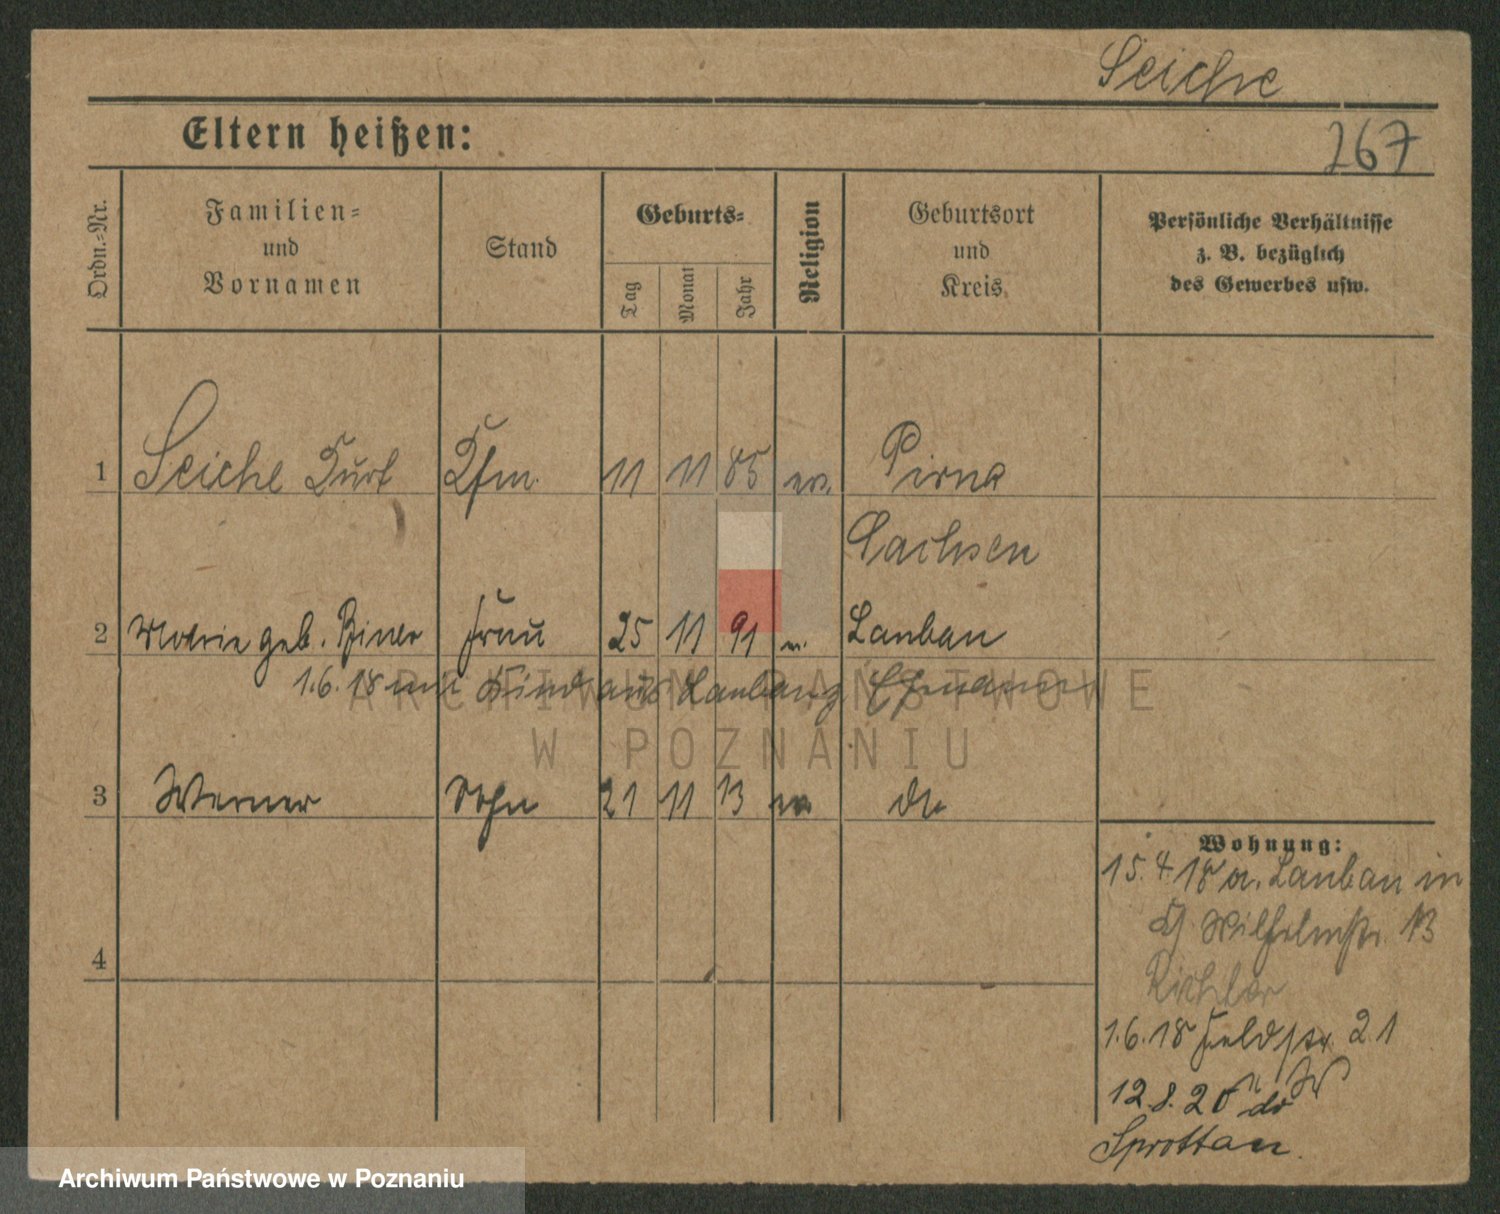 Seiche
Eltern heißen:
267
Ordn.-Nr.
Familien-
und
Vornamen
Stand
Geburts-
Tag
Monat
Jahr
Religion
Geburtsort
und
Kreis
Persönliche Verhältnisse
z. B. bezüglich
des Gewerbes usw.
1 Seiche Kurt Kfm. 11 11 85 ev. Pirna
Sachsen
2 geb. Frau 25 11 91 Lauban
1.6.18 Kind aus Lauban
3 Werner Sohn 21 11 13 do
ARCHIWUM PAŃSTWOWE
W POZNANIU
Wohnung:
15.4.18 a. Lauban in
Wilhelmstr. 13
Richter
4
1.6.18 Feldstr. 21
12.8.20
Sprottau.
Archiwum Państwowe w Poznaniu